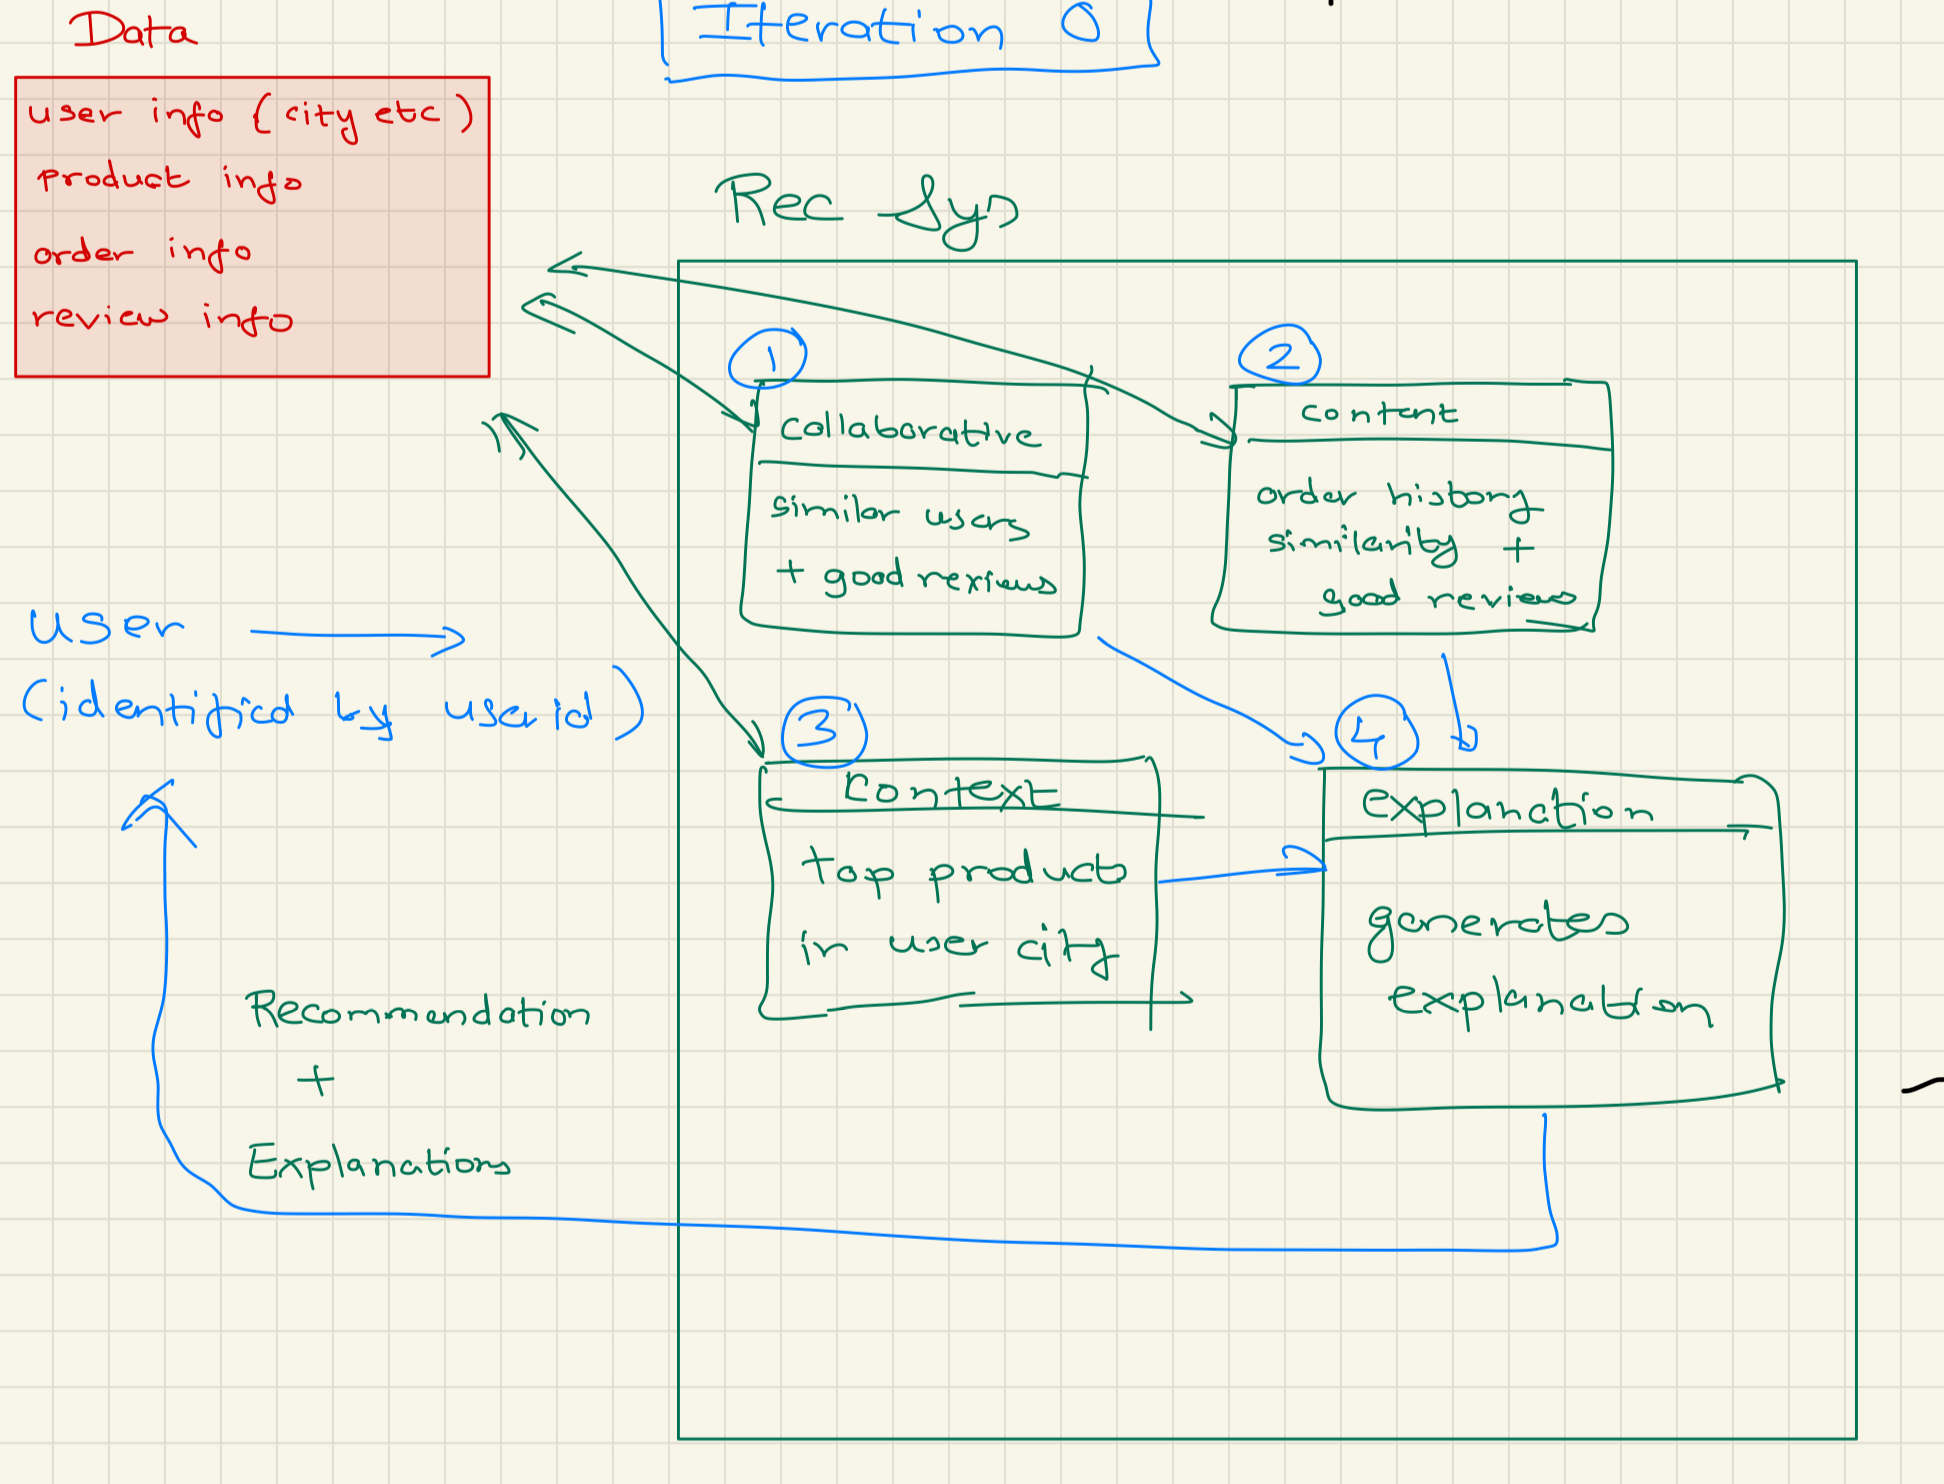 Data
user info (city etc)
product info
order info
review info
Iteration 0
Rec Sys
1
collaborative
similar users
+ good reviews
2
content
order history
similarity +
good reviews
user
(identified by userid)
3
Context
top products
in user city
4
explanation
generates
explanation
Recommendation
+
Explanations